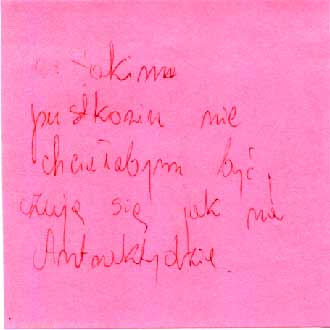 w takim
pustkowiu nie
chciałabym być,
czuję się jak na
Antarktydzie.